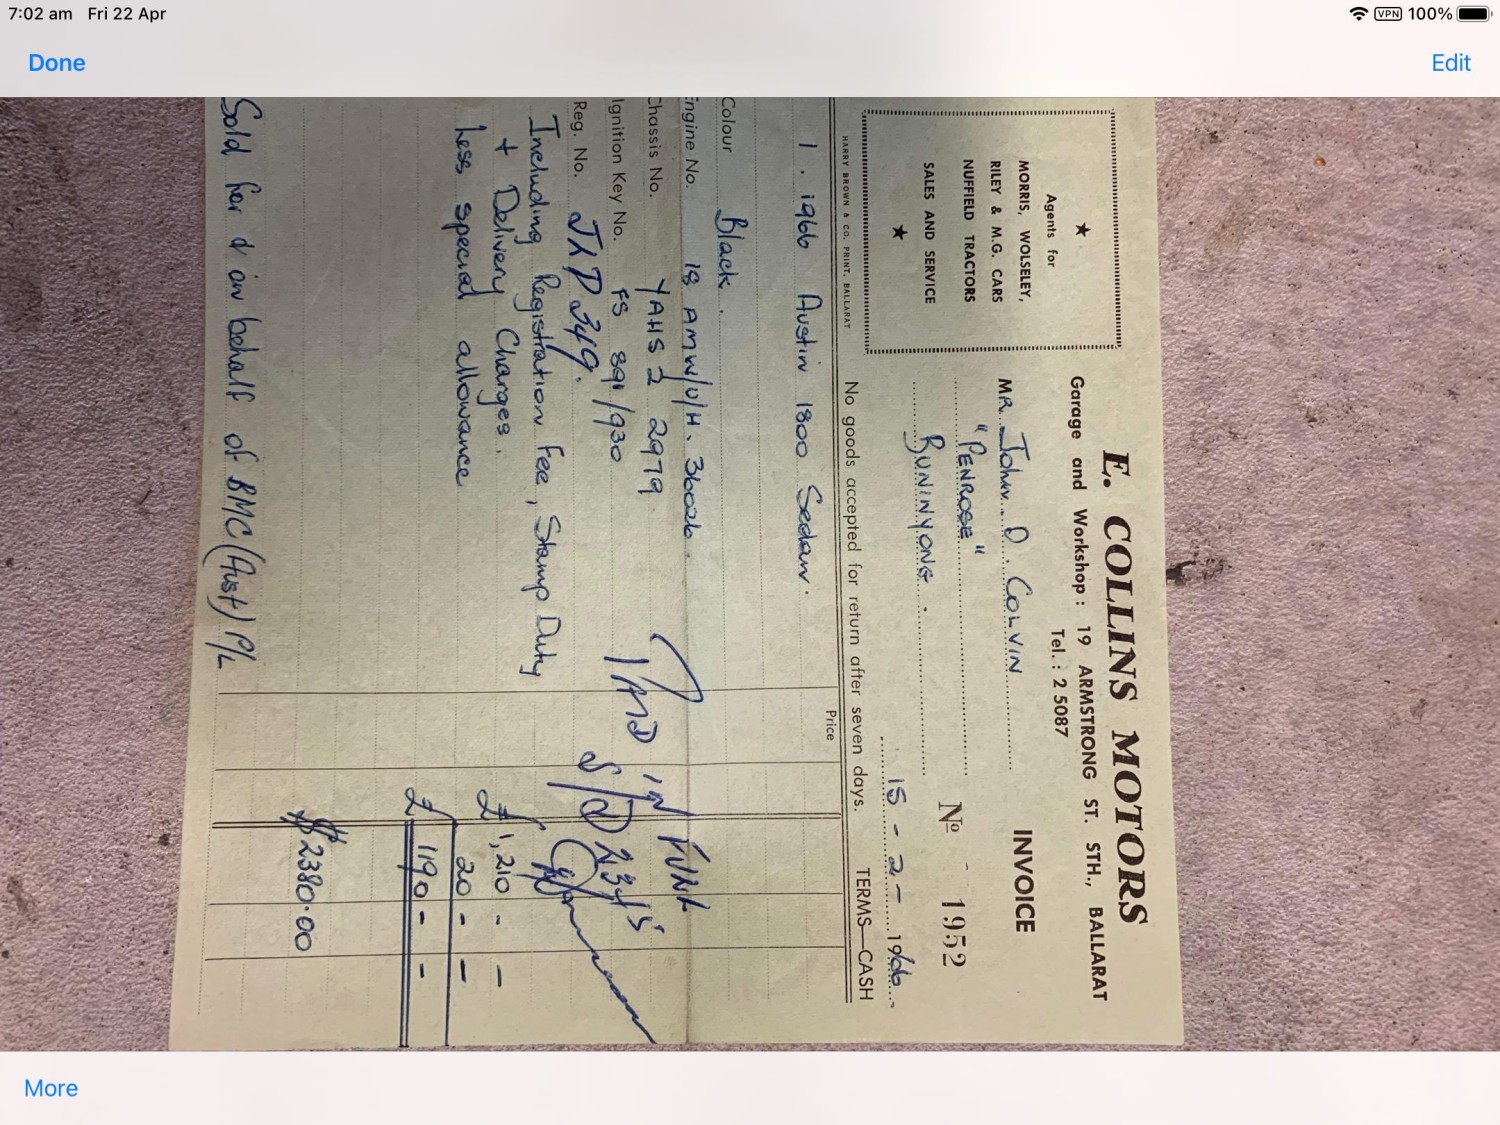 7:02 am Fri 22 Apr
VPN 100%
Done
Edit
E. COLLINS MOTORS
Garage and Workshop : 19 ARMSTRONG ST. STH., BALLARAT
Tel. : 2 5087
★
Agents for
MORRIS, WOLSELEY,
RILEY & M.G. CARS
NUFFIELD TRACTORS
SALES AND SERVICE
★
HARRY BROWN & CO. PRINT, BALLARAT
INVOICE
No 1952
MR. John D. COLVIN
"PENROSE"
BUNINYONG.
15 - 2 - 1966
No goods accepted for return after seven days. TERMS—CASH
Price
1. 1966 Austin 1800 Sedan.
Colour Black.
Engine No. 18 AMW/U/H. 36026.
Chassis No. YAHS 2 2979
Ignition Key No. FS 891/930
Reg. No. JLD 349.
PAID IN FULL
Including Registration Fee, Stamp Duty
+ Delivery Charges. £1,210 - -
Less special allowance 20 - -
£1190 - -
$2380.00
Sold for & on behalf of BMC (Aust) P/L
More